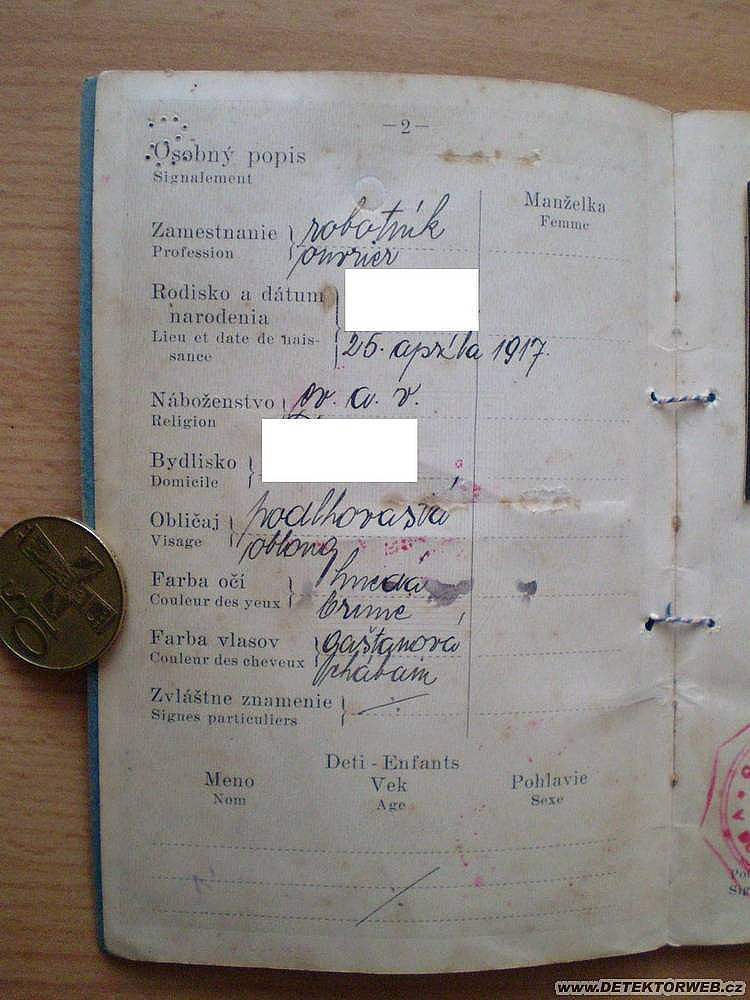 -2-
Osobný popis
Signalement
Manželka
Femme
Zamestnanie
Profession
robotník
ouvrier
Rodisko a dátum
narodenia
Lieu et date de nais-
sance
25. apríla 1917.
Náboženstvo
Religion
ev. a. v.
Bydlisko
Domicile
Obličaj
Visage
podlhovastá
oblong
Farba očí
Couleur des yeux
hnedá
brune
Farba vlasov
Couleur des cheveux
gaštanová
Zvláštne znamenie
Signes particuliers
Deti - Enfants
Meno
Nom
Vek
Age
Pohlavie
Sexe
www.DETEKTORWEB.cz